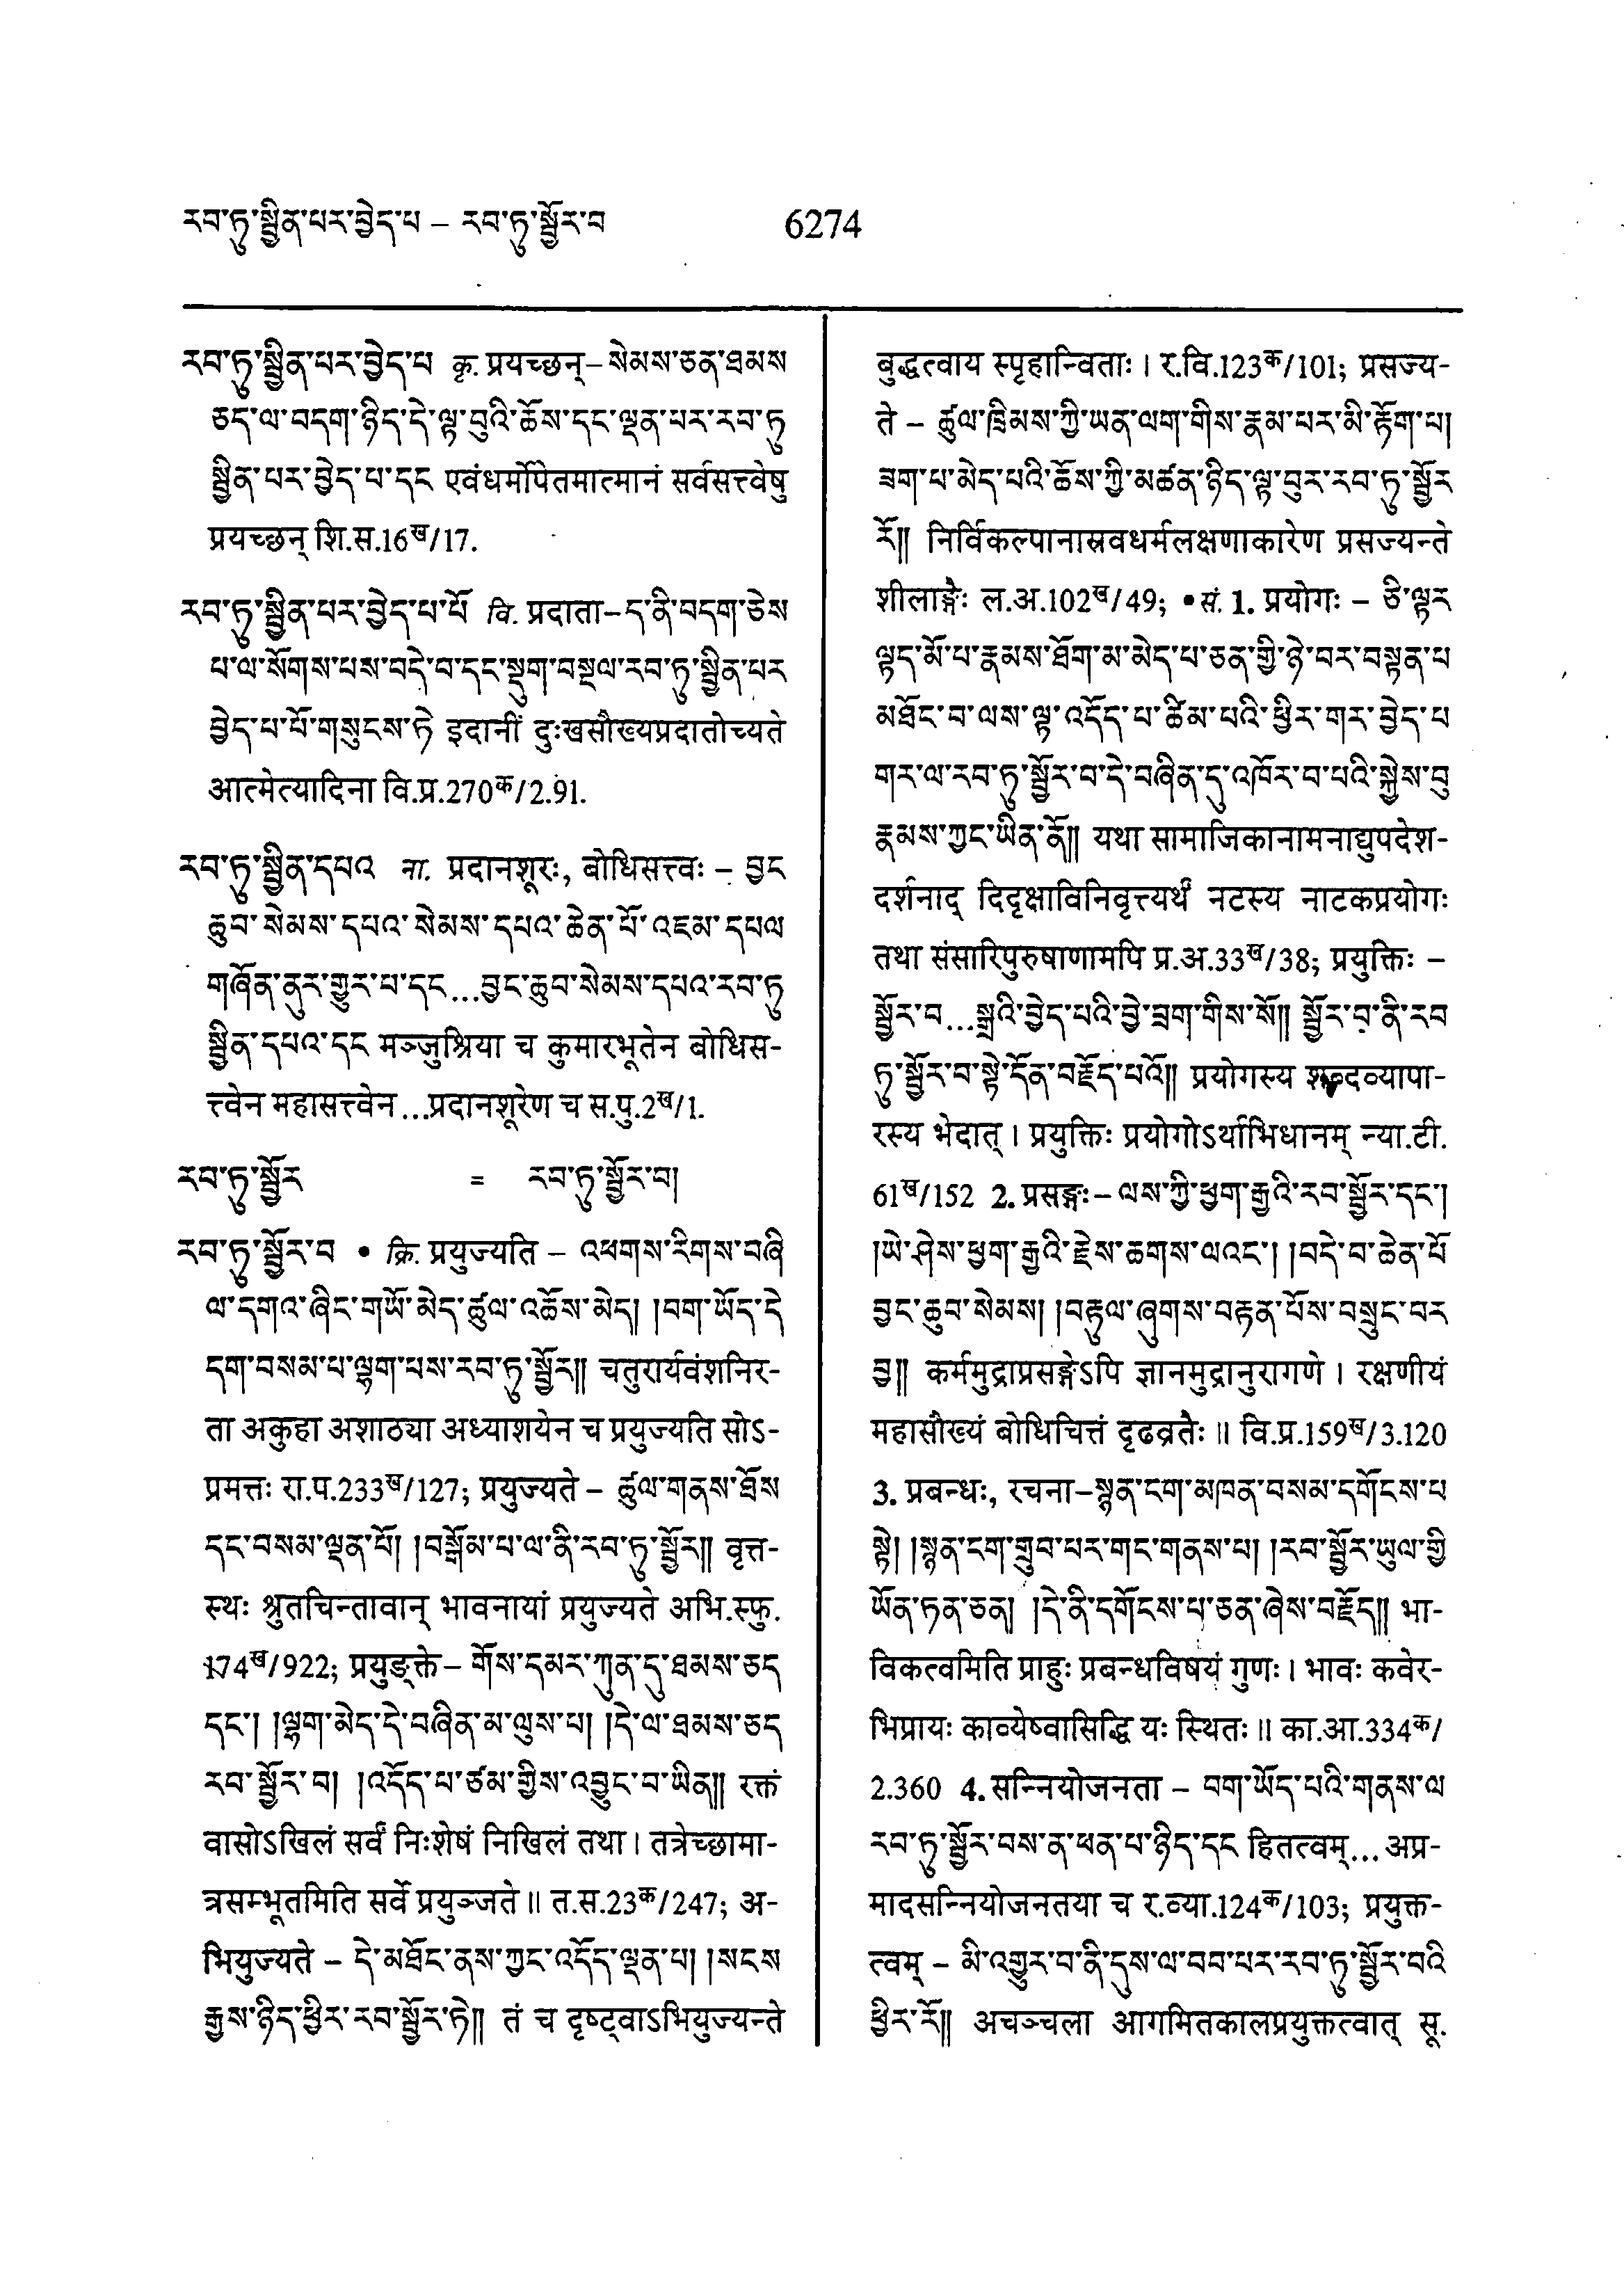 རབ་ཏུ་སྦྱིན་པར་བྱེད་པ – རབ་ཏུ་སྦྱོར་བ 6274
རབ་ཏུ་སྦྱིན་པར་བྱེད་པ कृ. प्रयच्छन् – སེམས་ཅན་ཐམས
ཅད་ལ་བདག་ཉིད་དེ་ལྟ་བུའི་ཆོས་དང་ལྡན་པར་རབ་ཏུ
སྦྱིན་པར་བྱེད་པ་དང एवंधर्मोपेतमात्मानं सर्वसत्त्वेषु
प्रयच्छन् शि.स.16ख/17.
རབ་ཏུ་སྦྱིན་པར་བྱེད་པ་པོ वि. प्रदाता – ད་ནི་བདག་ཅེས
པ་ལ་སོགས་པས་བདེ་བ་དང་སྡུག་བསྔལ་རབ་ཏུ་སྦྱིན་པར
བྱེད་པ་པོ་གསུངས་ཏེ इदानीं दुःखसौख्यप्रदातोच्यते
आत्मेत्यादिना वि.प्र.270क/2.91.
རབ་ཏུ་སྦྱིན་དཔའ ना. प्रदानशूरः, बोधिसत्त्वः – བྱང
ཆུབ་སེམས་དཔའ་སེམས་དཔའ་ཆེན་པོ་འཇམ་དཔལ
གཞོན་ནུར་གྱུར་པ་དང...བྱང་ཆུབ་སེམས་དཔའ་རབ་ཏུ
སྦྱིན་དཔའ་དང मञ्जुश्रिया च कुमारभूतेन बोधिस-
त्त्वेन महासत्त्वेन...प्रदानशूरेण च स.पु.2ख/1.
རབ་ཏུ་སྦྱོར = རབ་ཏུ་སྦྱོར་བ།
རབ་ཏུ་སྦྱོར་བ • क्रि. प्रयुज्यति – འཕགས་རིགས་བཞི
ལ་དགའ་ཞིང་གཡོ་མེད་ཚུལ་འཆོས་མེད། །བག་ཡོད་དེ
དག་བསམ་པ་ལྷག་པས་རབ་ཏུ་སྦྱོར།། चतुरार्यवंशनिर-
ता अकुहा अशाठ्या अध्याशयेन च प्रयुज्यति सोऽ-
प्रमत्तः रा.प.233ख/127; प्रयुज्यते – ཚུལ་གནས་ཐོས
དང་བསམ་ལྡན་པོ། །བསྒོམ་པ་ལ་ནི་རབ་ཏུ་སྦྱོར།། वृत्त-
स्थः श्रुतचिन्तावान् भावनायां प्रयुज्यते अभि.स्फु.
174ख/922; प्रयुङ्क्ते – གོས་དམར་ཀུན་དུ་ཐམས་ཅད
དང༌། །ལྷག་མེད་དེ་བཞིན་མ་ལུས་པ། །དེ་ལ་ཐམས་ཅད
རབ་སྦྱོར་བ། །འདོད་པ་ཙམ་གྱིས་འབྱུང་བ་ཡིན།། रक्तं
वासोऽखिलं सर्वं निःशेषं निखिलं तथा। तत्रेच्छामा-
त्रसम्भूतमिति सर्वे प्रयुञ्जते॥ त.स.23क/247; अ-
भियुज्यते – དེ་མཐོང་ནས་ཀྱང་འདོད་ལྡན་པ། །སངས
རྒྱས་ཉིད་ཕྱིར་རབ་སྦྱོར་ཏེ།། तं च दृष्ट्वाऽभियुज्यन्ते
बुद्धत्वाय स्पृहान्विताः। र.वि.123क/101; प्रसज्य-
ते – ཚུལ་ཁྲིམས་ཀྱི་ཡན་ལག་གིས་རྣམ་པར་མི་རྟོག་པ།
ཟག་པ་མེད་པའི་ཆོས་ཀྱི་མཚན་ཉིད་ལྟ་བུར་རབ་ཏུ་སྦྱོར
རོ།། निर्विकल्पानास्रवधर्मलक्षणाकारेण प्रसज्यन्ते
शीलाङ्गैः ल.अ.102ख/49; • सं. 1. प्रयोगः – ཅི་ལྟར
ལྟད་མོ་པ་རྣམས་ཐོག་མ་མེད་པ་ཅན་གྱི་ཉེ་བར་བསྟན་པ
མཐོང་བ་ལས་ལྟ་འདོད་པ་ཚིམ་པའི་ཕྱིར་གར་བྱེད་པ
གར་ལ་རབ་ཏུ་སྦྱོར་བ་དེ་བཞིན་དུ་འཁོར་བ་པའི་སྐྱེས་བུ
རྣམས་ཀྱང་ཡིན་ནོ།། यथा सामाजिकानामनाद्युपदेश-
दर्शनाद् दिदृक्षाविनिवृत्त्यर्थं नटस्य नाटकप्रयोगः
तथा संसारिपुरुषाणामपि प्र.अ.33ख/38; प्रयुक्तिः –
སྦྱོར་བ...སྒྲའི་བྱེད་པའི་བྱེ་བྲག་གིས་སོ།། སྦྱོར་བ་ནི་རབ
ཏུ་སྦྱོར་བ་སྟེ་དོན་བརྗོད་པའོ།། प्रयोगस्य शब्दव्यापा-
रस्य भेदात्। प्रयुक्तिः प्रयोगोऽर्थाभिधानम् न्या.टी.
61ख/152 2. प्रसङ्गः – ལས་ཀྱི་ཕྱག་རྒྱའི་རབ་སྦྱོར་དང༌།
།ཡེ་ཤེས་ཕྱག་རྒྱའི་རྗེས་ཆགས་ལའང༌། །བདེ་བ་ཆེན་པོ
བྱང་ཆུབ་སེམས། །བརྟུལ་ཞུགས་བརྟན་པོས་བསྲུང་བར
བྱ།། कर्ममुद्राप्रसङ्गेऽपि ज्ञानमुद्रानुरागणे। रक्षणीयं
महासौख्यं बोधिचित्तं दृढव्रतैः॥ वि.प्र.159ख/3.120
3. प्रबन्धः, रचना – སྙན་ངག་མཁན་བསམ་དགོངས་པ
སྟེ། །སྙན་ངག་གྲུབ་པར་གང་གནས་པ། །རབ་སྦྱོར་ཡུལ་གྱི
ཡོན་ཏན་ཅན། །དེ་ནི་དགོངས་པ་ཅན་ཞེས་བརྗོད།། भा-
विकत्वमिति प्राहुः प्रबन्धविषयं गुणः। भावः कवेर-
भिप्रायः काव्येष्वासिद्धि यः स्थितः॥ का.आ.334क/
2.360 4. सन्नियोजनता – བག་ཡོད་པའི་གནས་ལ
རབ་ཏུ་སྦྱོར་བས་ན་ཕན་པ་ཉིད་དང हितत्वम्...अप्र-
मादसन्नियोजनतया च र.व्या.124क/103; प्रयुक्त-
त्वम् – མི་འགྱུར་བ་ནི་དུས་ལ་བབ་པར་རབ་ཏུ་སྦྱོར་བའི
ཕྱིར་རོ།། अचञ्चला आगमितकालप्रयुक्तत्वात् सू.